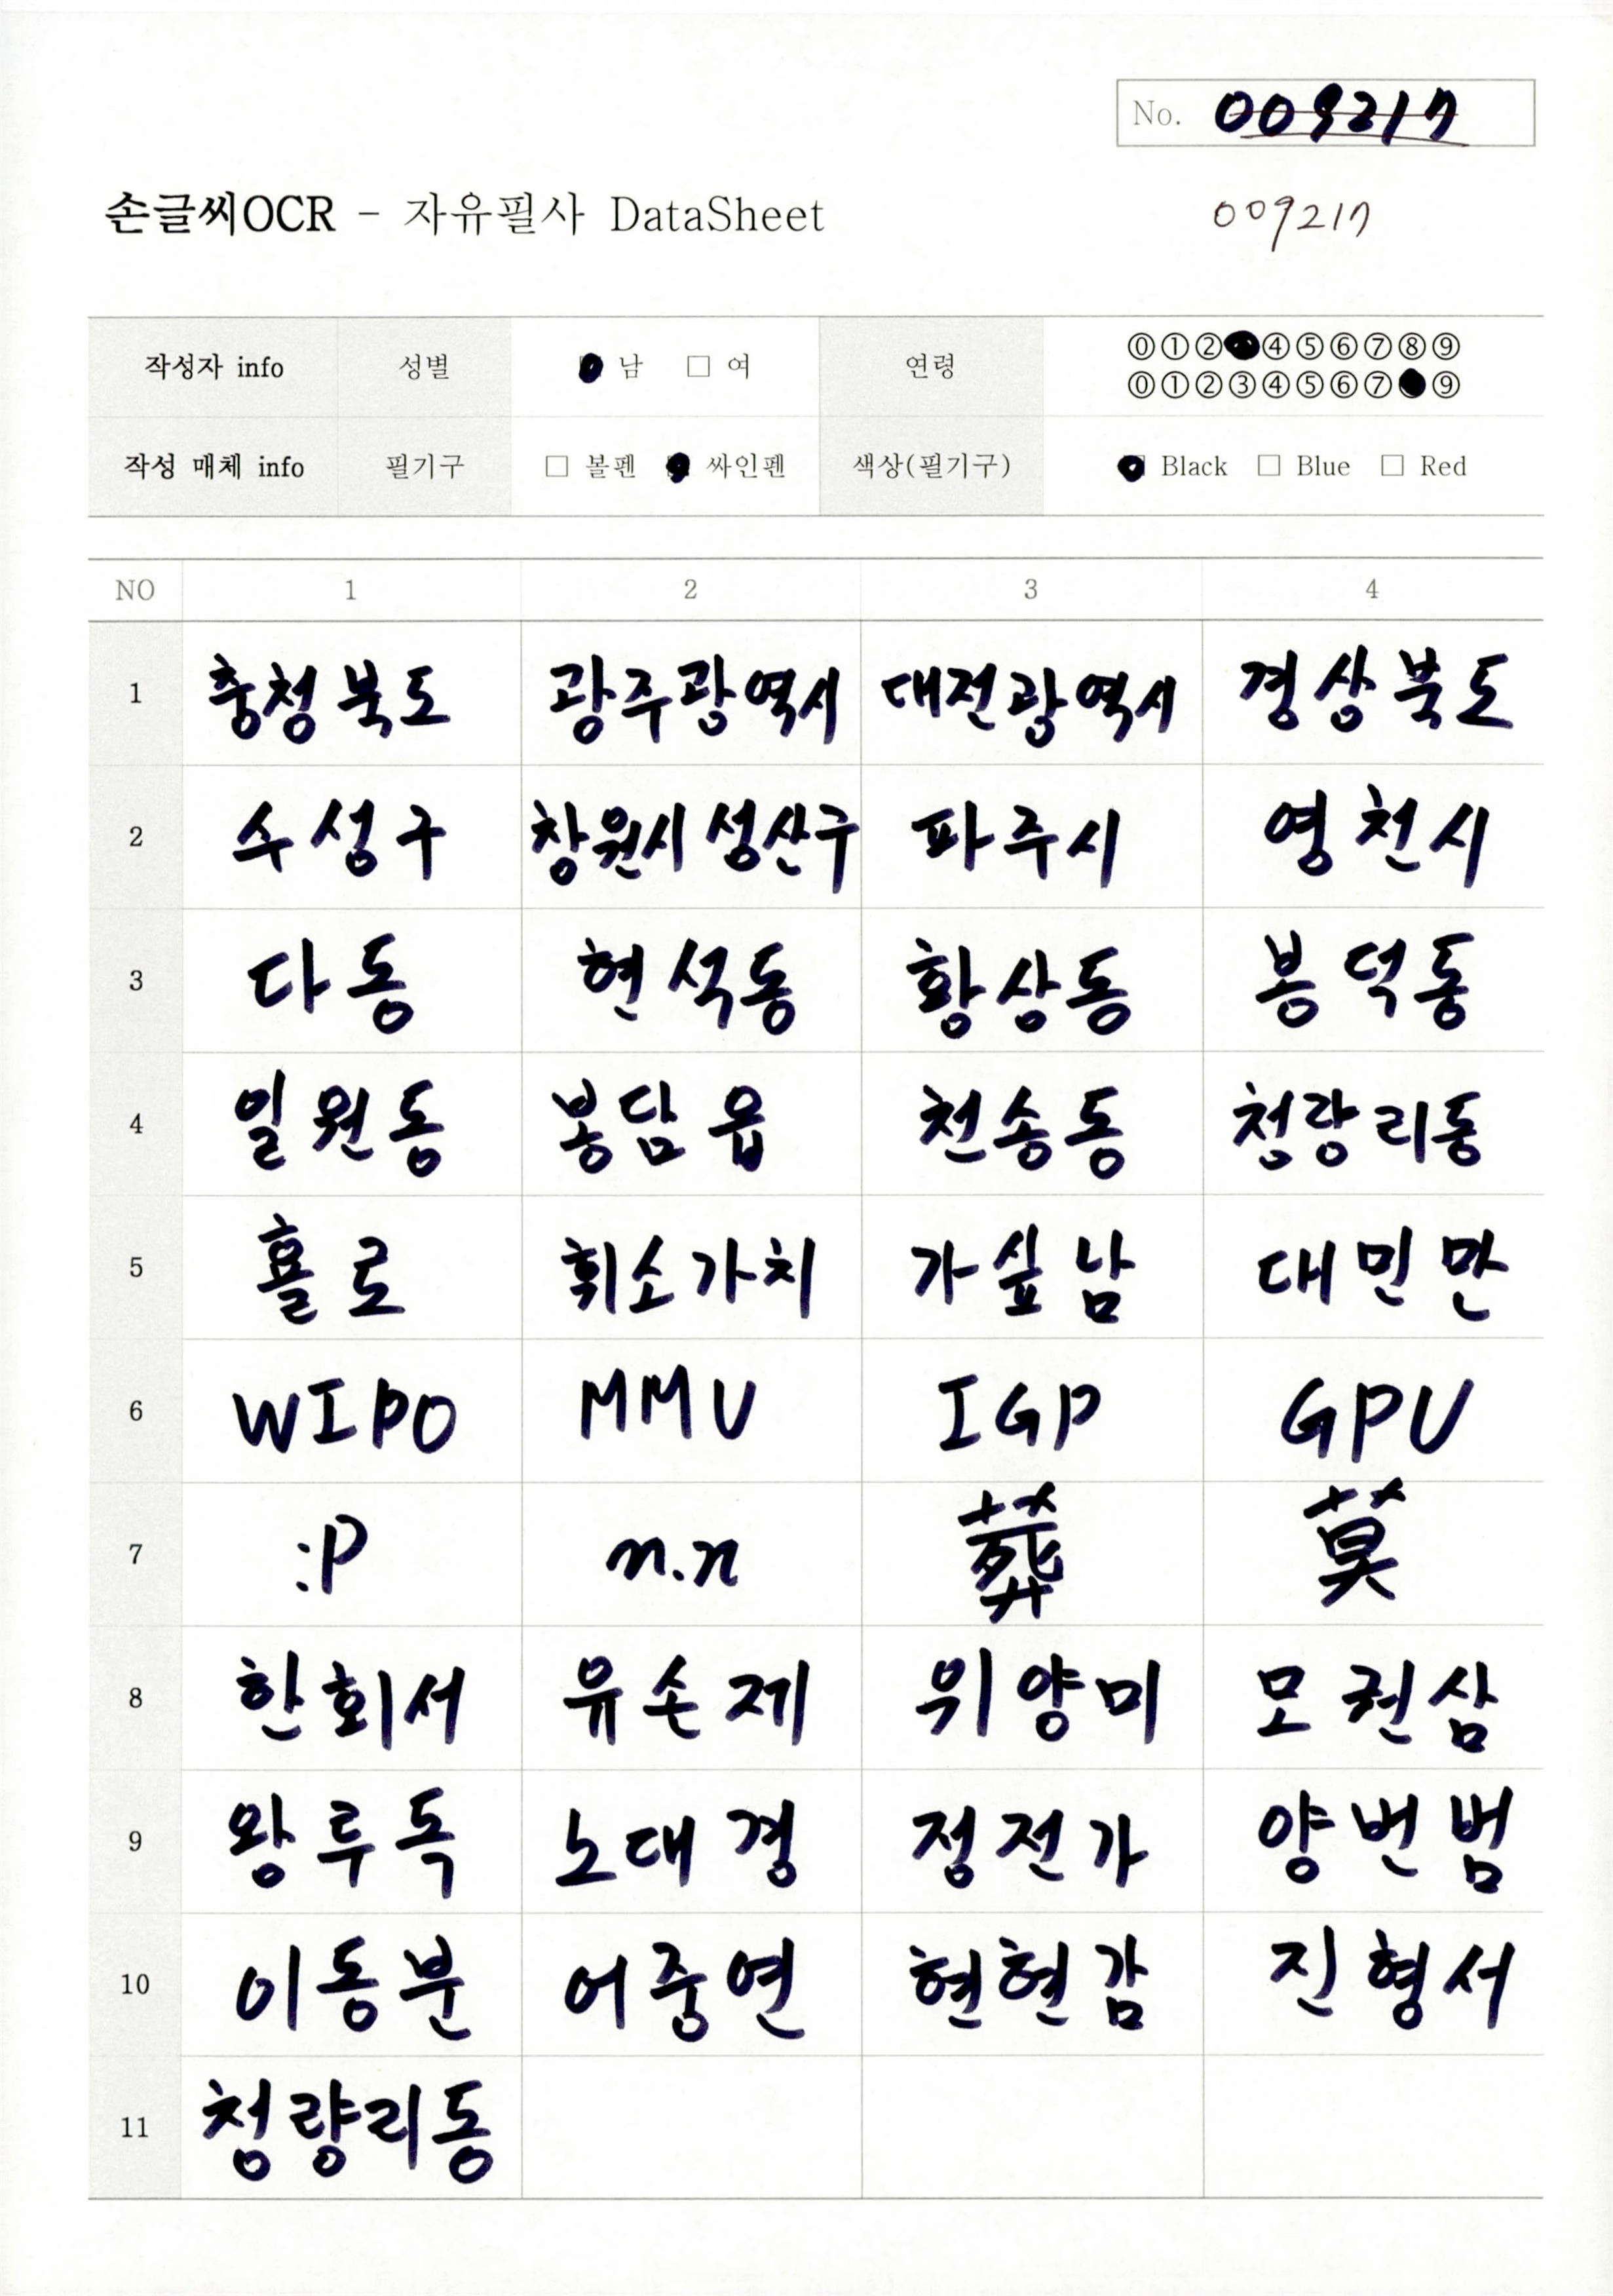 No. 009217
손글씨OCR - 자유필사 DataSheet
009217
작성자 info 성별 남 □ 여 연령 ⓪①②④⑤⑥⑦⑧⑨
⓪①②③④⑤⑥⑦⑨
작성 매체 info 필기구 □ 볼펜 싸인펜 색상(필기구) Black □ Blue □ Red
NO 1 2 3 4
1 충청북도 광주광역시 대전광역시 경상북도
2 수성구 창원시 성산구 파주시 영천시
3 다동 현석동 황상동 봉덕동
4 일원동 봉담읍 천송동 청량리동
5 횰로 휘소가치 가싶남 대민만
6 WIPO MMU IGP GPU
7 :P n.n 葬 莫
8 한회서 유손제 위양미 모권삼
9 왕투독 노대경 정전가 양번범
10 이동분 어중연 현현감 진형서
11 청량리동